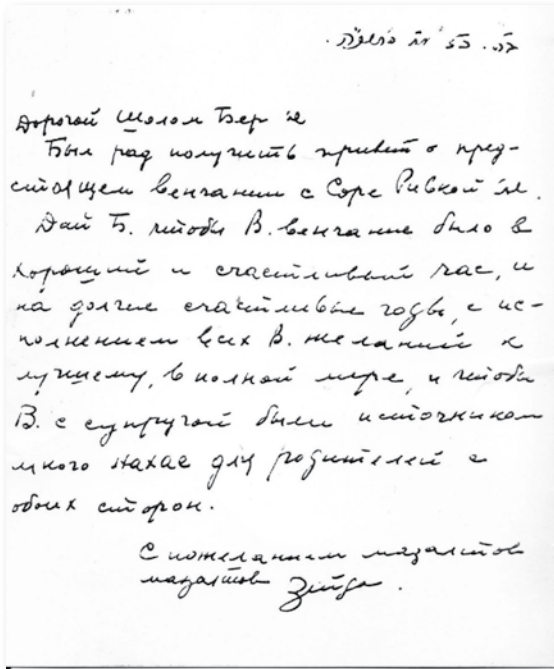 Дорогой Шолом Бер
Был рад получить привет о пред-
стоящем венчании с Соре Ривкой
Дай Б. чтобы В. венчание было в
хороший и счастливый час, и
на долгие счастливые годы, с ис-
полнением всех В. желаний к
лучшему, в полной мере, и чтобы
В. с супругой были источником
много нахас для родителей с
обоих сторон.
С пожеланием мазалтов
мазалтов Зейде.